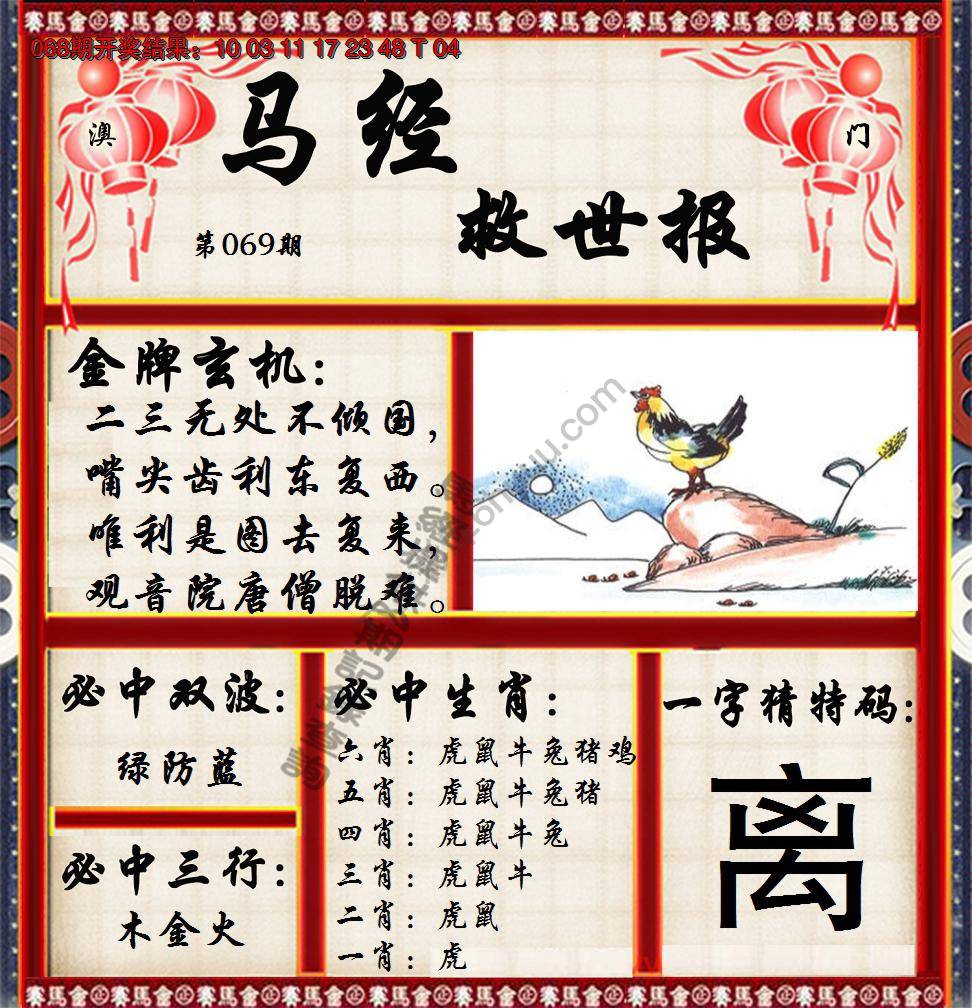 068期开奖结果：10 03 11 17 23 48 T 04
澳
门
马经
救世报
第069期
金牌玄机：
二三无处不倾国，
嘴尖齿利东复西。
唯利是图去复来，
观音院唐僧脱难。
必中双波：
绿防蓝
必中三行：
木金火
必中生肖：
六肖：虎鼠牛兔猪鸡
五肖：虎鼠牛兔猪
四肖：虎鼠牛兔
三肖：虎鼠牛
二肖：虎鼠
一肖：虎
一字猜特码：
离